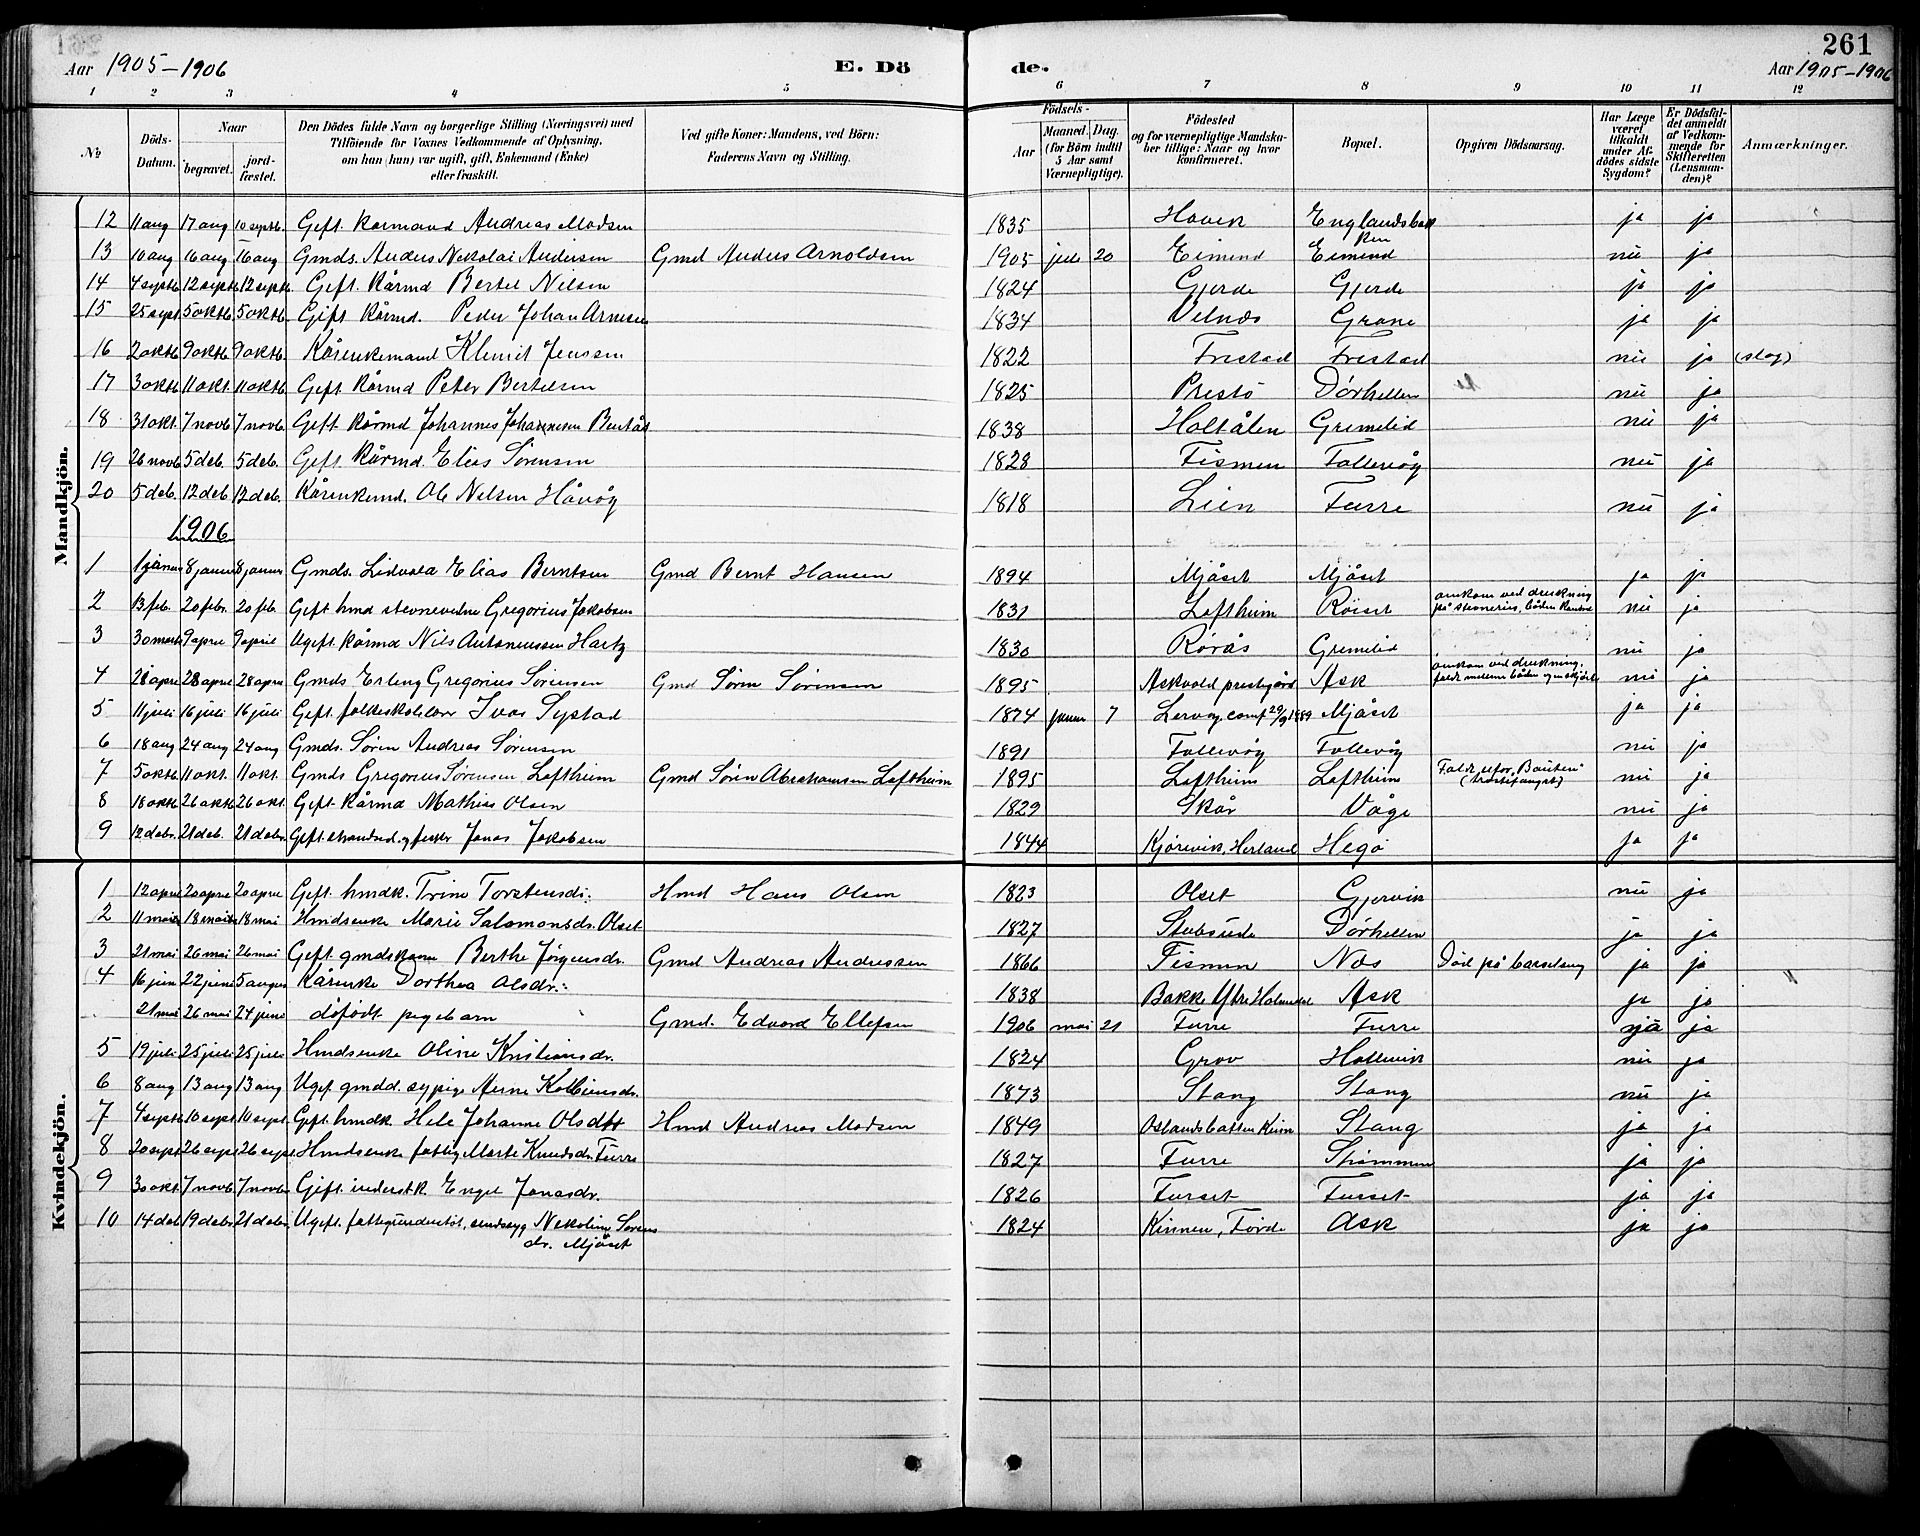 261
Aar 1905-1906 E. Dö de. Aar 1905-1906
1 2 3 4 5 6 7 8 9 10 11 12
№ Döds-Datum. Naar begravet. jord-fæstet. Den Dödes fulde Navn og borgerlige Stilling (Næringsvei) med Tilföiende for Voxnes Vedkommende af Oplysning. om han (hun) var ugift, gift, Enkemand (Enke) eller fraskilt. Ved gifte Koner: Mandens, ved Börn: Faderens Navn og Stilling. Födsels- Aar Maaned. Dag. (for Börn indtil 5 Aar samt Værnepligtige). Födested og for værnepligtige Mandskaber tillige: Naar og hvor konfirmeret. Bopæl. Opgiven Dödsaarsag. Har Læge været tilkaldt under Afdödes sidste Sygdom? Er Dödsfaldet anmeldt af Vedkommende for Skifteretten (Lensmanden)? Anmærkninger.
Mandkjön.
12 11 aug 17 aug 10 septb. Gift. Kårmand Andreas Madsen 1835 Hovek Englandsbakken ja ja
13 10 aug 16 aug 16 aug Gmds. Anders Nekolai Andersen Gmd Anders Arnoldsen 1905 juli 20 Eimind Eimind nei ja
14 4 septb 12 septb 12 septb. Gift. Kårmd Bertel Nilsen 1824 Gjerde Gjerde ja ja
15 25 sept 5 oktb 5 oktb. Gift Kårmd. Peder Johan Arnesen 1834 Velnæs Grane ja ja
16 2 oktb. 9 oktb. 9 oktb. Kårenkemand Klemet Jensen 1822 Frestad Frestad nei ja (slag)
17 3 oktb 11 okt. 11 oktb. Gift Kårmd Peter Bertelsen 1825 Prestö Dörhellen nei ja
18 31 okt. 7 novb. 7 novb. Gift Kårmd Johannes Johannesen Bentås 1838 Holtålen Gremelid nei ja
19 26 novb 5 deb. 5 deb. Gift Kårmd. Elias Sörensen 1828 Tismen Tollevåg nei ja
20 5 deb. 12 deb 12 deb. Kårenkemd. Ole Nelsen Håvåg 1818 Lien Furre nei ja
1906
1 1 januar 8 januar 8 januar Gmds. Lidvald Elias Berntsen Gmd Bernt Hansen 1894 Mjåset Mjåset ja ja
2 13 feb. 20 febr. 20 feb. Gift hmd stevnevidne Gregorius Jakobsen 1831 Loftheim Röiset omkom ved drukning på stevnereis, båden kantret nei ja
3 30 marts 9 april 9 april Ugift Kårmd Nils Antoniussen Hartz 1830 Rörås Gremelid nei ja
4 21 april 28 april 28 april Gmds Erling Gregorius Sörensen Gmd Sören Sörensen 1895 Askvold prestgård Ask omkom ved drukning, faldt mellem båden og en skjöt nei ja
5 11 juli 16 juli 16 juli Gift. folkeskolelærer Ivar Systad 1874 januar 7 Lervåg, conf 29/9 1889 Mjåset ja ja
6 18 aug 24 aug 24 aug Gmds. Sören Andreas Sörensen 1891 Tollevåg Tollevåg nei ja
7 5 oktb 11 okt. 11 okt. Gmds Gregorius Sörensen Loftheim Gmd Sören Abrahamsen Loftheim 1895 Loftheim Loftheim Faldt utfor "Bauten" nei ja
8 18 oktb 26 oktb 26 okt. Gift Kårmd Mathias Olsen 1829 Skår Våge nei ja
9 12 debr. 21 deb. 21 debr. Gift. strandsid. og fisker Jonas Jakobsen 1844 Kjörevik, Herland Hegö ja ja
Kvindekjön.
1 12 april 20 april 20 april Gift. hmdk. Trine Torstensdr. Hmd Hans Olsen 1823 Olset Gjervik nei ja
2 11 mai 18 mai 18 mai Hmdsenke Marie Salamonsdr. Olset 1827 Stubseide Dörhellen ja ja
3 21 mai 26 mai 26 mai Gift gmdskone Berthe Jörgensdr. Gmd Andreas Andressen 1866 Tismen Næs Död på barselseng ja ja
4 16 juni 22 juni 5 august Kårenke Dorthea Olsdr. 1838 Bakke Ytre Holmedal Ask ja ja
21 mai 26 mai 24 juni döfödt pigebarn Gmd. Edvard Ellefsen 1906 mai 21 Furre Furre ja ja
5 19 juli 25 juli 25 juli Hmdsenke Oline Kristiansdr. 1824 Grov Hollevik nei ja
6 8 aug 13 aug 13 aug Ugift gmdd. sypige Anne Kolbeinsdr. 1873 Stang Stang nei ja
7 4 septb 10 sept 10 sept. Gift. hmdk Hele Johanne Olsdtt Hmd Andreas Madsen 1849 Oslandsbotten Kirin Stang ja ja
8 20 sept 26 sept 26 sept. Hmdsenke fattig Marte Knudsdr. Furre 1827 Furre Strömmen ja ja
9 30 okt. 7 novb 7 novb. Gift. inderstk. Engel Jonasdr. 1826 Furset Furset ja ja
10 14 deb 19 debr 21 debr. Ugift. fattigunderstöt, sindssyg Nekoline Sörensdr. Mjåset 1824 Kinnen, Förde Ask ja ja